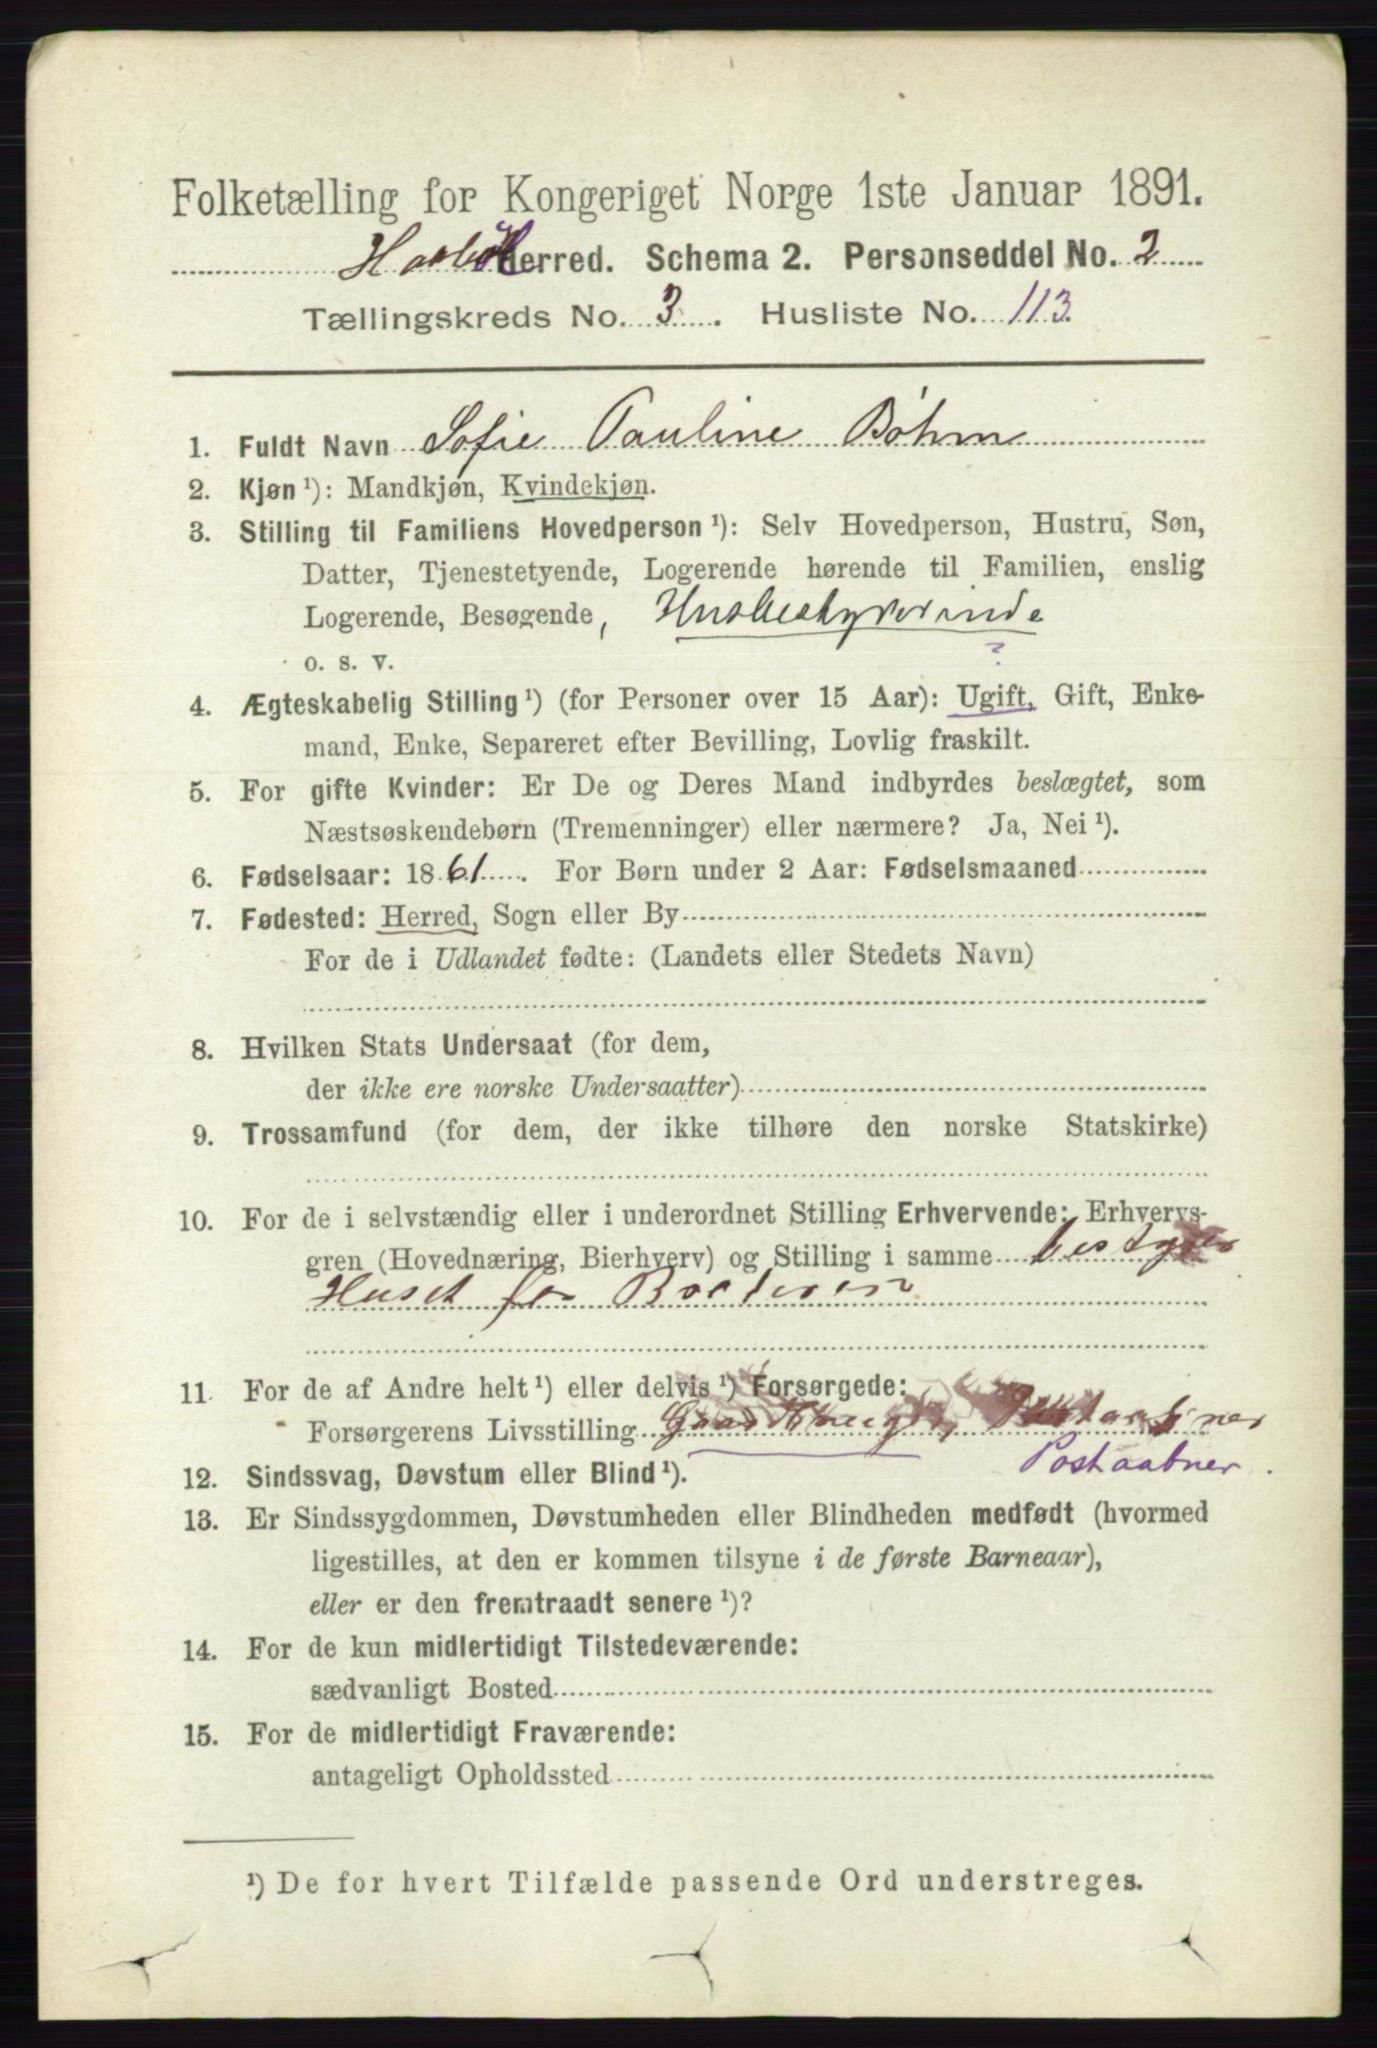 Folketælling for Kongeriget Norge 1ste Januar 1891.
Herred. Schema 2. Personseddel No. 2
Tællingskreds No. 3. Husliste No. 113.
1. Fuldt Navn Sofie Pauline Bøhm
2. Kjøn ¹): Mandkjøn, Kvindekjøn.
3. Stilling til Familiens Hovedperson ¹): Selv Hovedperson, Hustru, Søn,
Datter, Tjenestetyende, Logerende hørende til Familien, enslig
Logerende, Besøgende, Husbestyrerinde
o. s. v. ?
4. Ægteskabelig Stilling ¹) (for Personer over 15 Aar): Ugift, Gift, Enke-
mand, Enke, Separeret efter Bevilling, Lovlig fraskilt.
5. For gifte Kvinder: Er De og Deres Mand indbyrdes beslægtet, som
Næstsøskendebørn (Tremenninger) eller nærmere? Ja, Nei ¹).
6. Fødselsaar: 1861. For Børn under 2 Aar: Fødselsmaaned
7. Fødested: Herred, Sogn eller By
For de i Udlandet fødte: (Landets eller Stedets Navn)
8. Hvilken Stats Undersaat (for dem,
der ikke ere norske Undersaatter)
9. Trossamfund (for dem, der ikke tilhøre den norske Statskirke)
10. For de i selvstændig eller i underordnet Stilling Erhvervende: Erhvervs-
gren (Hovednæring, Bierhverv) og Stilling i samme bestyrer
Huset for Broderen
11. For de af Andre helt ¹) eller delvis ¹) Forsørgede:
Forsørgerens Livsstilling Gaardbruger, Postaabner
Postaabner.
12. Sindssvag, Døvstum eller Blind ¹).
13. Er Sindssygdommen, Døvstumheden eller Blindheden medfødt (hvormed
ligestilles, at den er kommen tilsyne i de første Barneaar),
eller er den fremtraadt senere ¹)?
14. For de kun midlertidigt Tilstedeværende:
sædvanligt Bosted
15. For de midlertidigt Fraværende:
antageligt Opholdssted
¹) De for hvert Tilfælde passende Ord understreges.